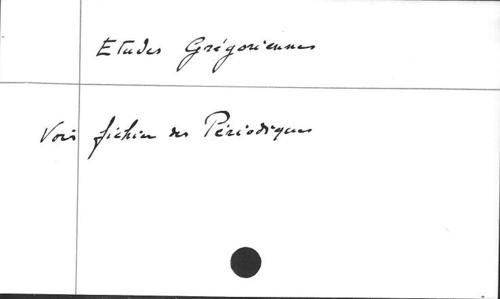 Etudes Grégoriennes
Voir fichier des Périodiques